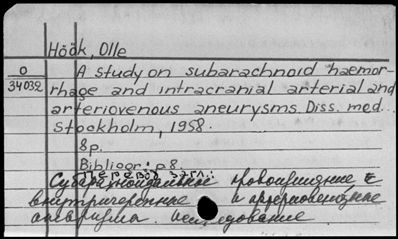 Höök, Olle
O
34032
A study on subarachnoid haemor-
rhage and intracranial arterial and
arteriovenous aneurysms. Diss. med...
Stockholm, 1958.
8p.
Bibliogr: p8.
Перевод загл.:
Субарахноидальное кровоизлияние с
внутричерепные и артериовенозные
аневризма. исследование